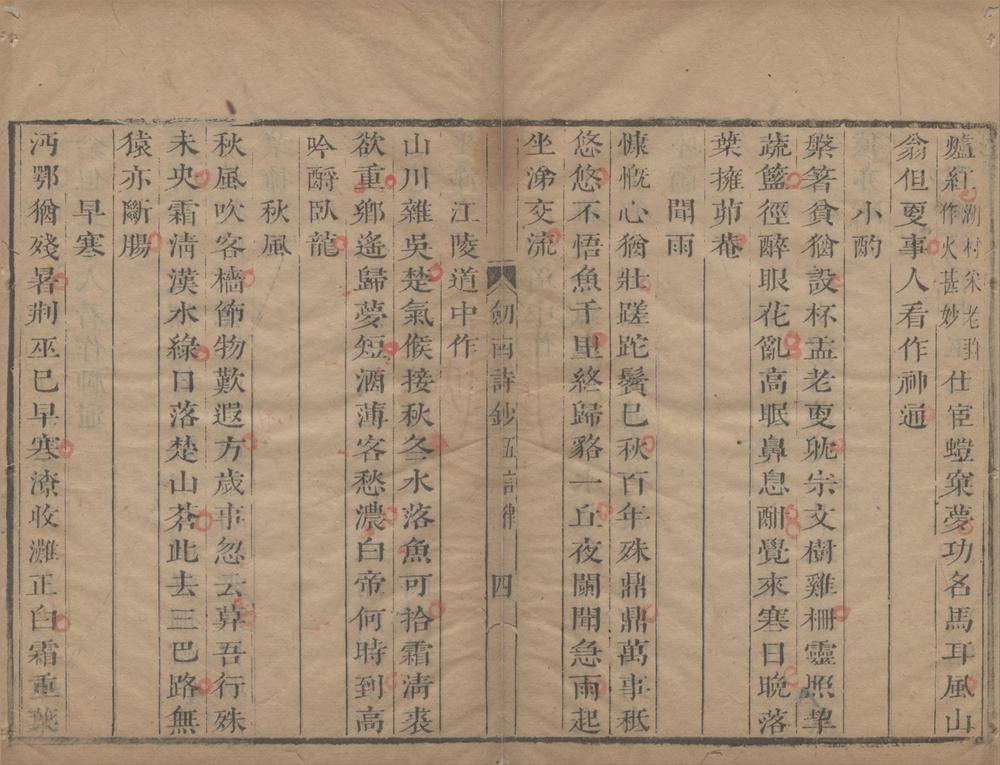 爐紅湖村宋老甜作火甚妙仕宦螘窠夢功名馬耳風山
翁但更事人看作神通
小酌
槃箸貧猶設杯盂老更耽宗文樹雞柵靈照挈
蔬籃徑醉眼花亂高眠鼻息酣覺來寒日晚落
葉擁茆菴
聞雨
慷慨心猶壯蹉跎鬢已秋百年殊鼎鼎萬事秪
悠悠不悟魚千里終歸貉一丘夜闌聞急雨起
坐涕交流
劒南詩鈔 五言律 四
江陵道中作
山川雜吳楚氣候接秋冬水落魚可拾霜淸裘
欲重鄉遙歸夢短酒薄客愁濃白帝何時到高
吟酹臥龍
秋風
秋風吹客檣節物歎遐方歲事忽云莫吾行殊
未央霜淸漢水綠日落楚山蒼此去三巴路無
猿亦斷腸
早寒
沔鄂猶殘暑荆巫已早寒潦收灘正白霜重葉